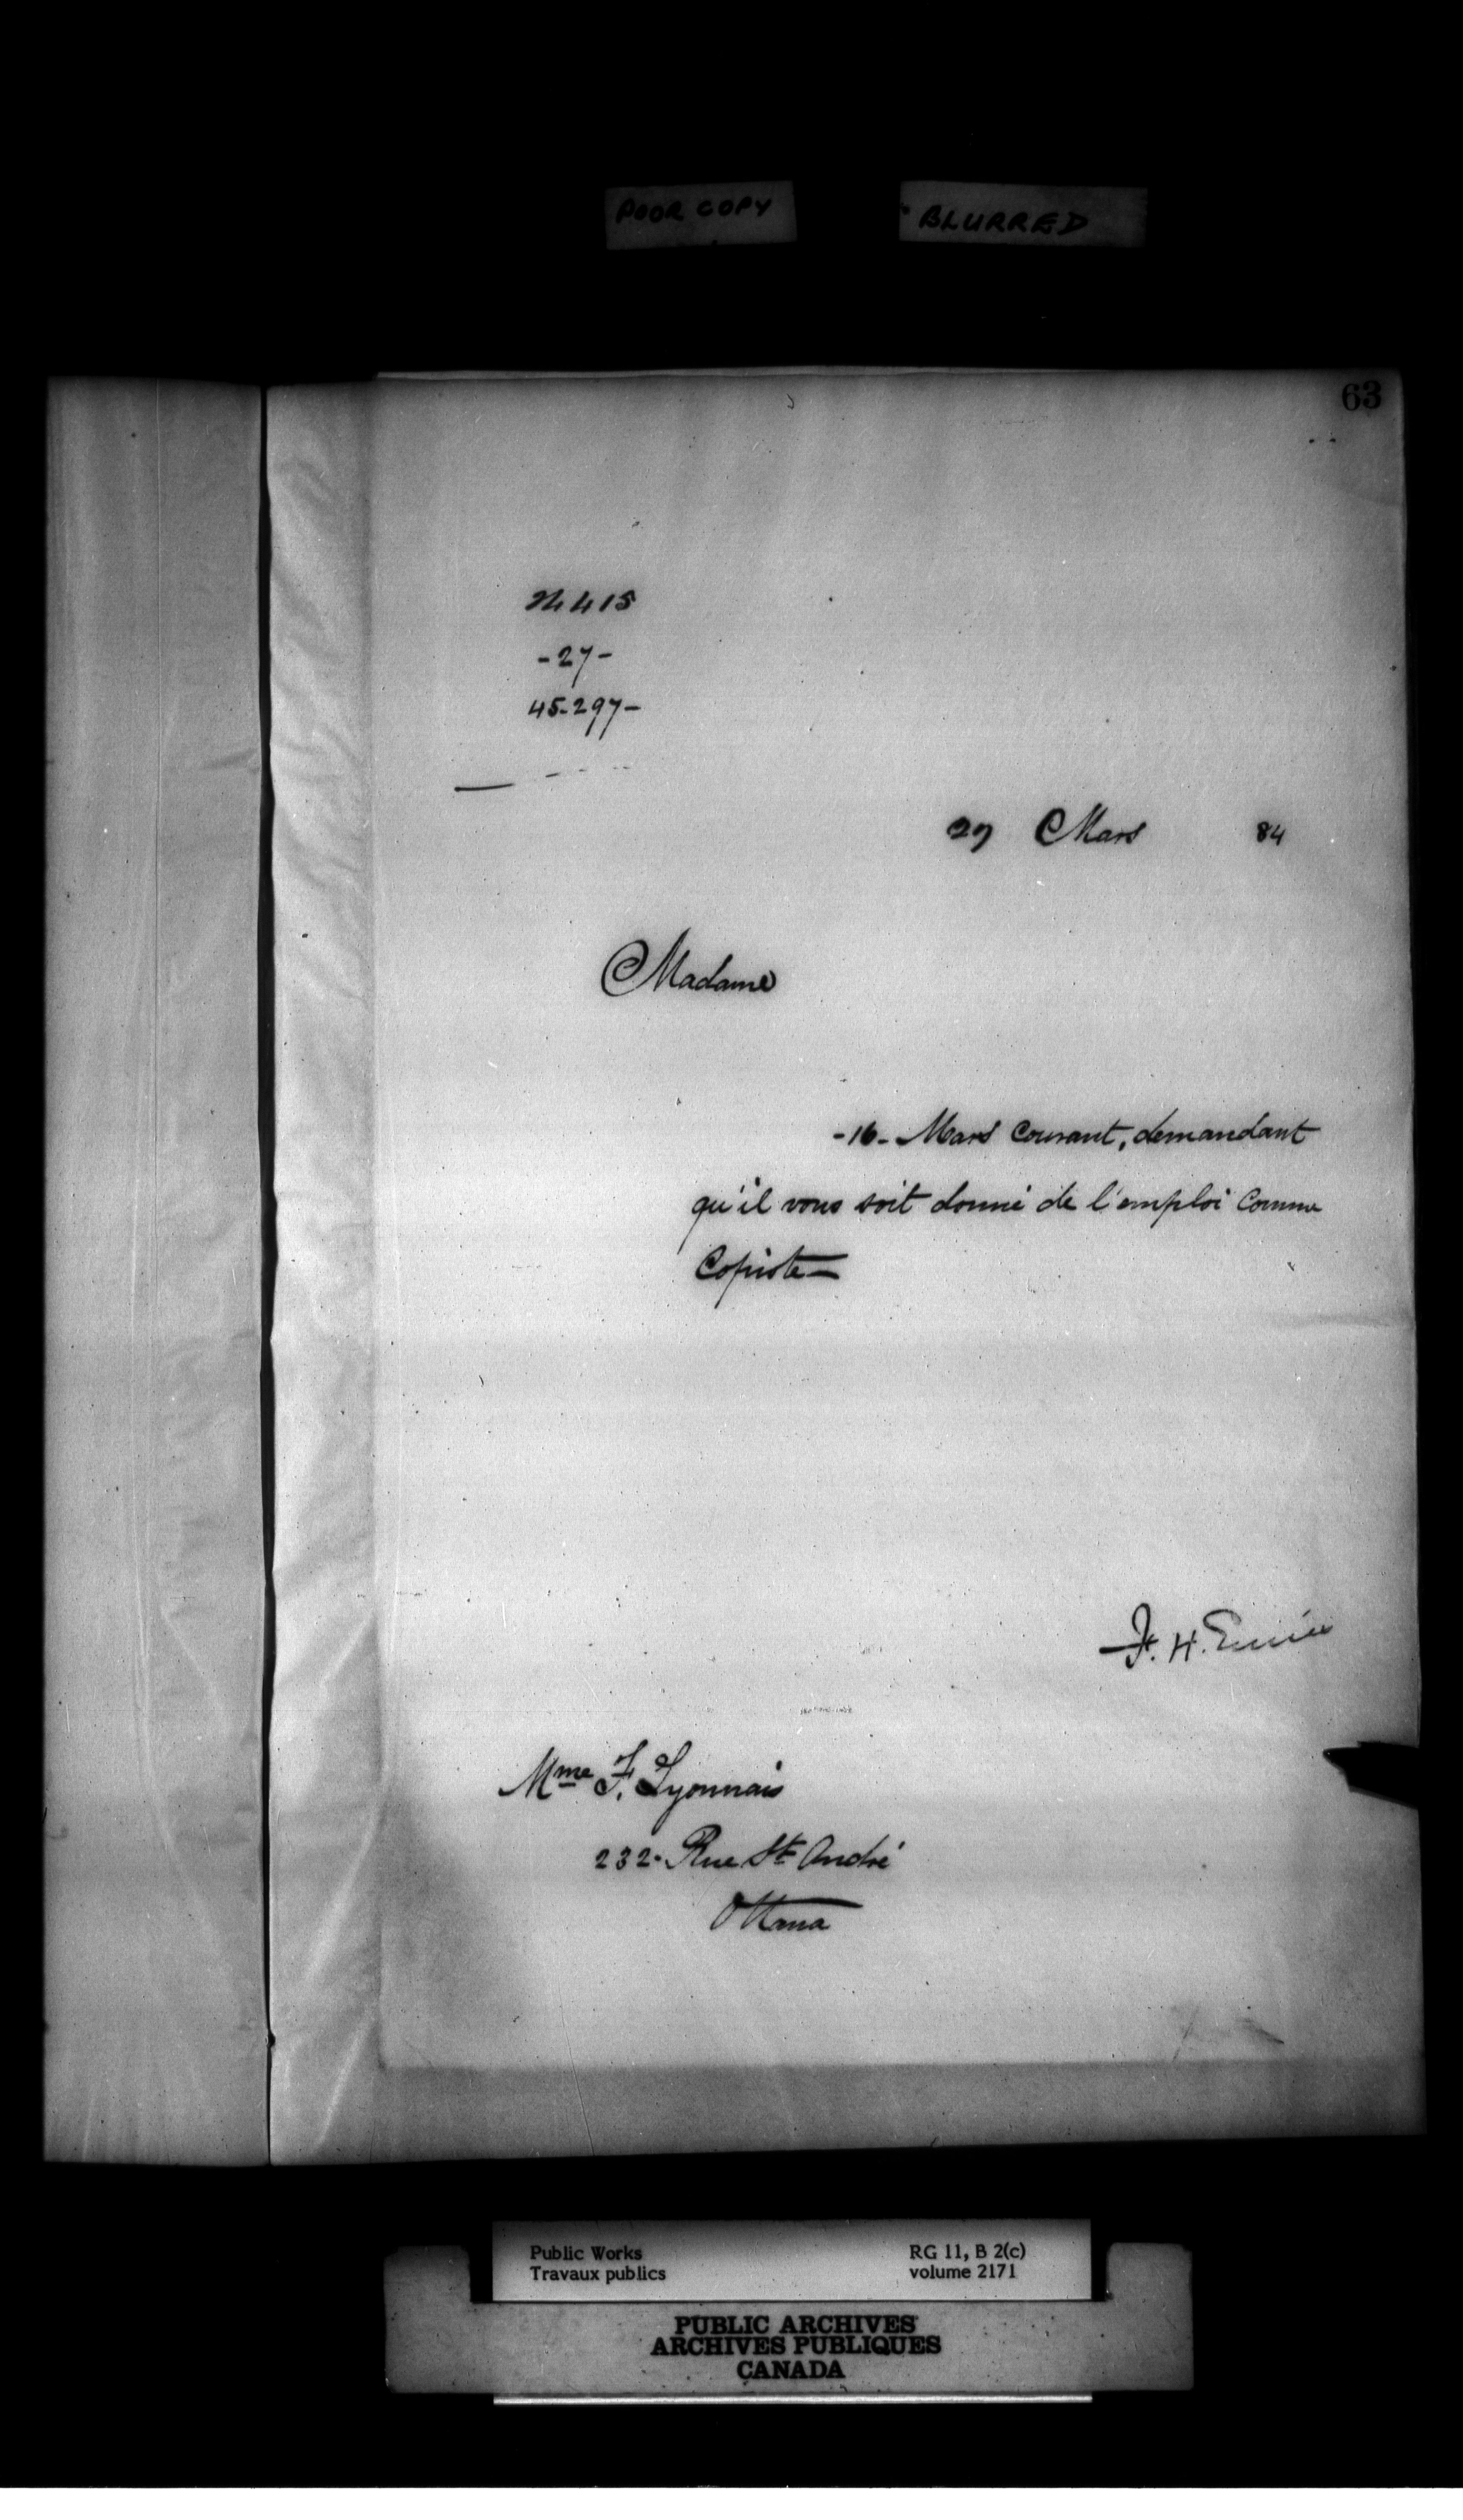 POOR COPY
BLURRED
63
415
-27-
45-297-
27 Mars 84
Madame
-16- Mars Courant, demandant
qu'il vous soit donné de l'emploi Comme
Copiste-
H.
Mme F. Lyonnais
232- Rue St André
Ottawa
Public Works
Travaux publics
RG 11, B 2(c)
volume 2171
PUBLIC ARCHIVES
ARCHIVES PUBLIQUES
CANADA